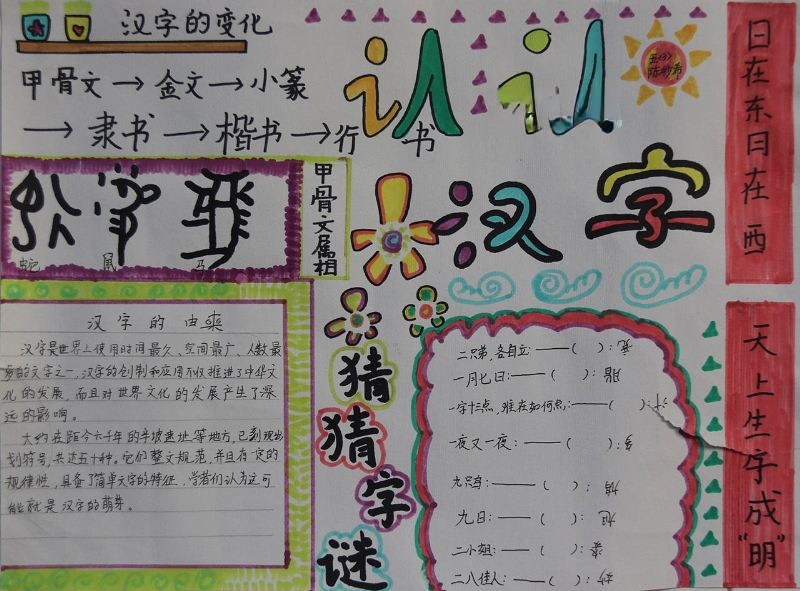 汉字的变化
甲骨文→金文→小篆
→隶书→楷书→行书
认认
汉字
五(3)
蛇 鼠 马
甲骨文属相
汉字的由来
汉字是世界上使用时间最久、空间最广、人数最
多的文字之一,汉字的创制和应用不仅推进了中华文
化的发展,而且对世界文化的发展产生了深
远的影响。
大约在距今六千年的半坡遗址等地方,已刻现出
划符号,共达五十种。它们整文规范,并且有一定的
规律性,具备了简单文字的特征,学者们认为这可
能就是汉字的萌芽。
猜猜字谜
二兄弟,各自立:——( ):竞
一月七日:——( ):脂
一字十三点,难在如何点:——( ):汁
一夜又一夜:——( ):多
九只鸟:——( ):鸠
九日:——( ):旭
二小姐:——( ):姿
二八佳人:——( ):妙
日在东月在西
天上生字成"明"